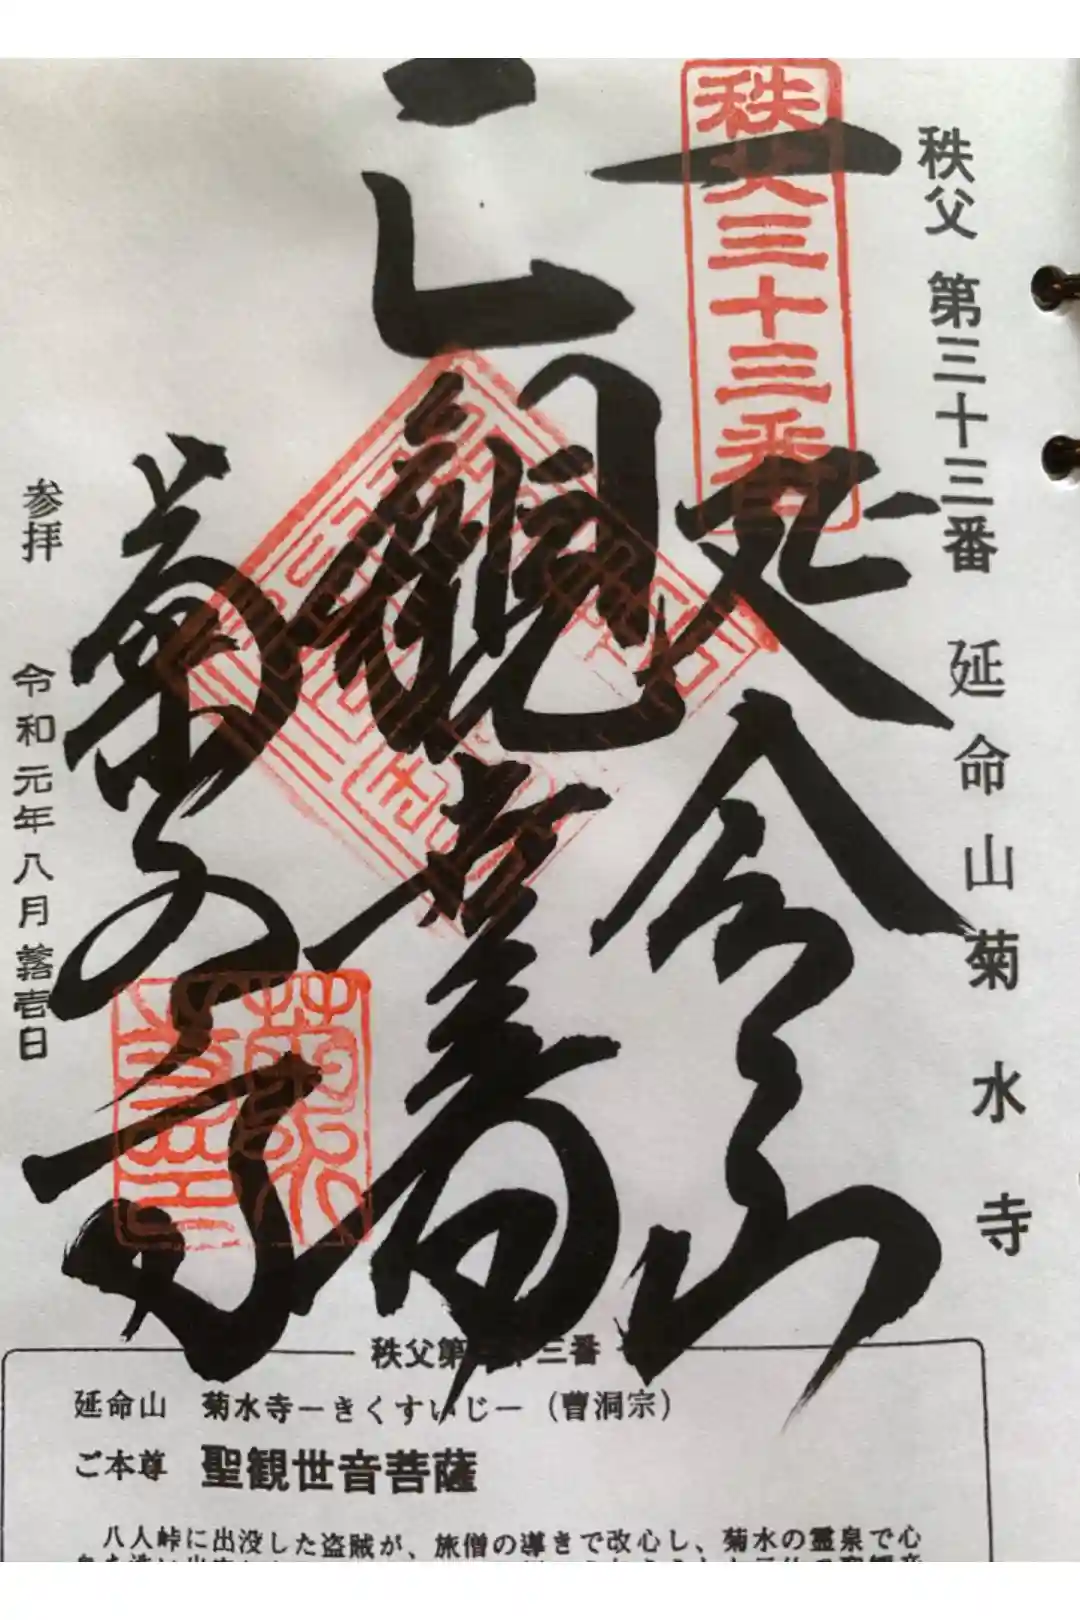 秩父 第三十三番 延命山菊水寺
秩父三十三番
延命山
観音
菊水寺
菊水
参拝 令和元年八月拾壱日
秩父第三十三番
延命山 菊水寺－きくすいじ－（曹洞宗）
ご本尊 聖観世音菩薩
八人峠に出没した盗賊が、旅僧の導きで改心し、菊水の霊泉で心